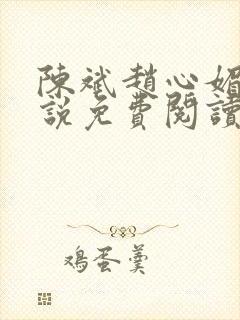 陳斌趙心媚
說免費閱讀
鳮蛋羹